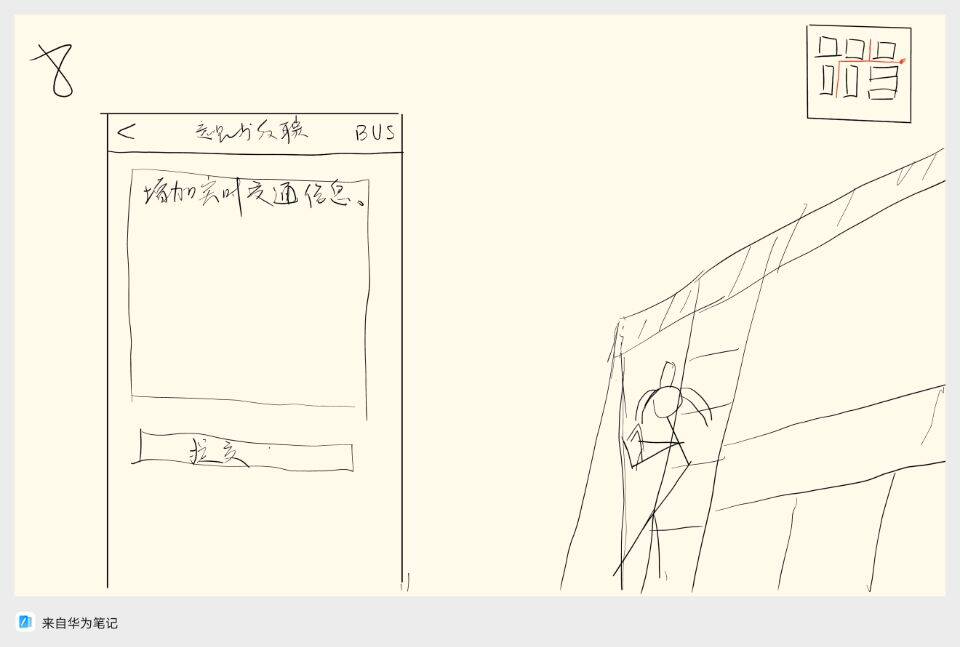 8
< 意见与 BUS
增加实时交通信息。
提交
来自华为笔记